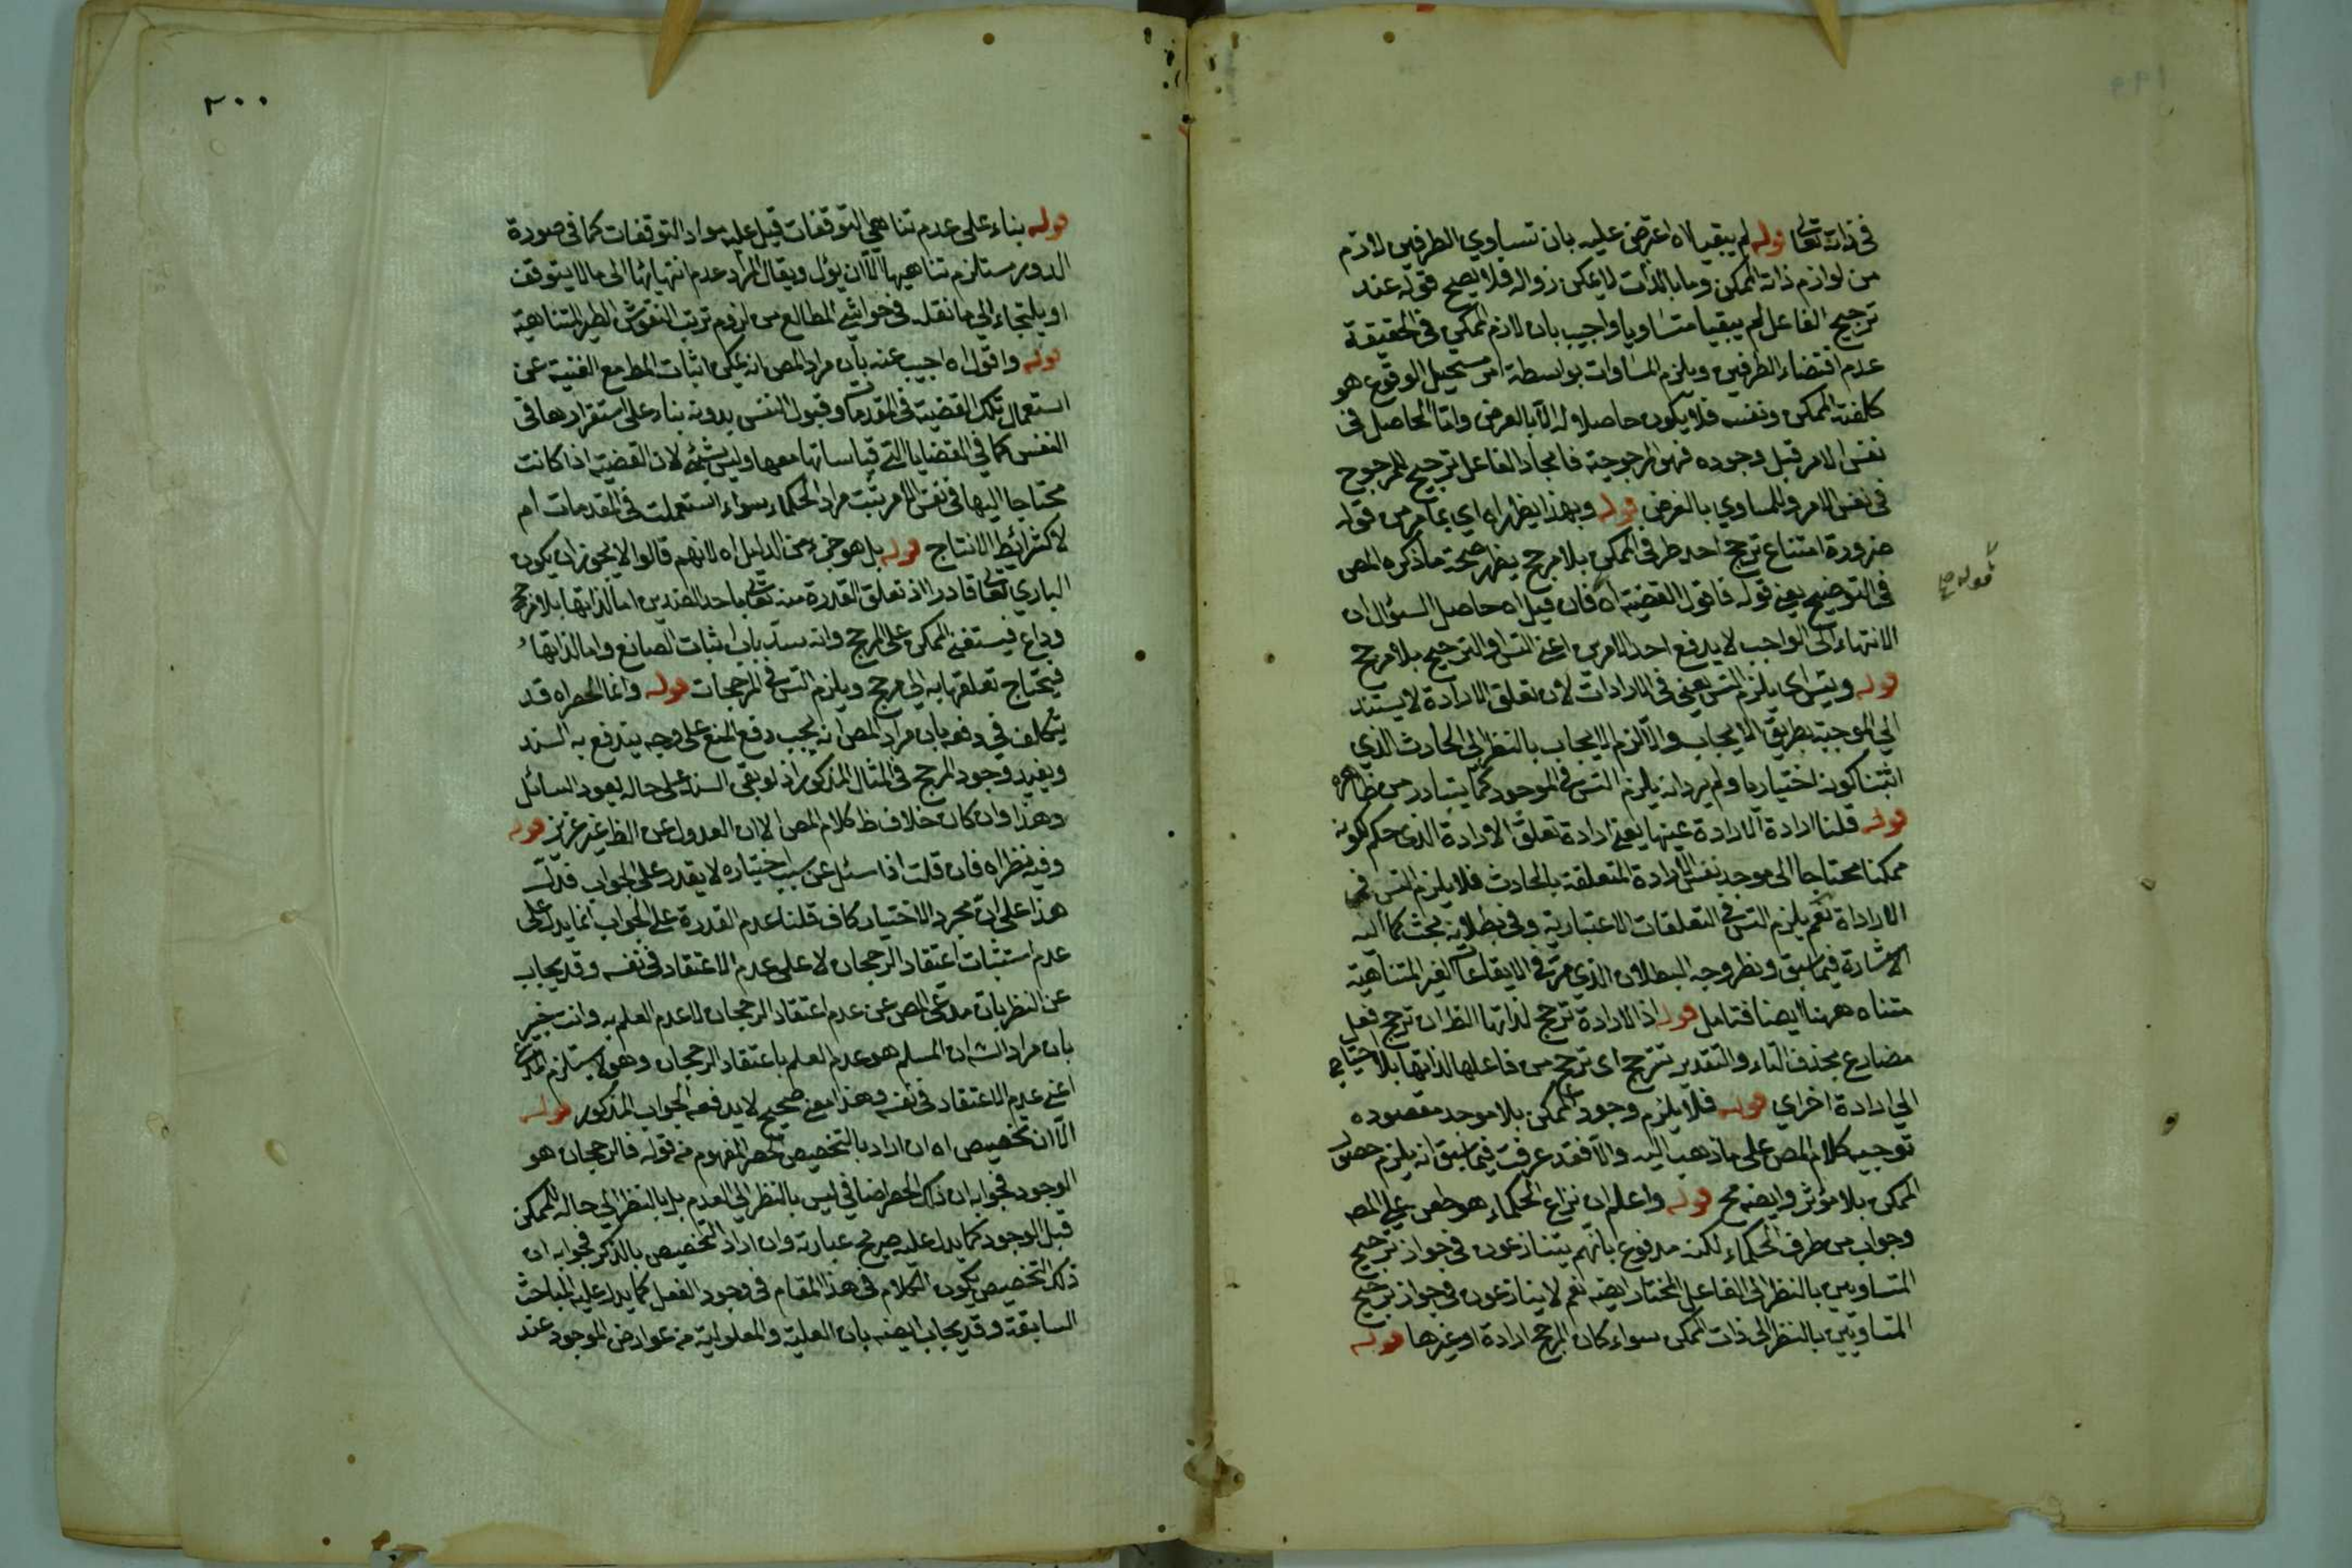 في ذاته تعالى قوله لم يبقيا اه اعترض عليه بان تساوي الطرفين لازم
من لوازم ذات الممكن وما بالذات لا يمكن زواله فلا يصح قوله عند
ترجيح الفاعل لم يبقيا متساويا واجيب بان لازم الممكن في الحقيقة
عدم اقتضاء الطرفين ويلزم المساوات بواسطة امر مستحيل الوقوع هو
كلفته الممكن ونفسه فلا يكون حاصلا له الا بالعرض واما الحاصل في
نفس الامر قبل وجوده فهو المرجوحية فايجاد الفاعل ترجيح للمرجوح
في نفس الامر وللمساوي بالفرض قوله وبهذا يظهر اه اي بما مر من قوله
ضرورة امتناع ترجح احد طرفي الممكن بلا مرجح يظهر صحة ما ذكره المص
في التوضيح يعني قوله فاقول القضية اه فان قيل اه حاصل السؤال ان
الانتهاء الى الواجب لا يدفع احد الامرين اعني التس او الترجيح بلا مرجح
قوله ويتس اي يلزم التس يعني في الارادات لان تعلق الارادة لا يستند
الى الموجبة بطريق الايجاب والا لزم الايجاب بالنظر الى الحادث الذي
اثبتنا كونه اختياريا ولم يرد انه يلزم التس في الموجود كما يتبادر من ظاهره
قوله قلنا ارادة الارادة عينها يعني ارادة تعلق الارادة الذي حكم بكونه
ممكنا محتاجا الى موجد نفس الارادة المتعلقة بالحادث فلا يلزم التس في
الارادة نعم يلزم التس في التعلقات الاعتبارية وفي بطلانه بحث كما اليه
الاشارة فيما سبق ونظر وجه البطلان الذي مر في الايقاعات الغير المتناهية
متناه ههنا ايضا فتامل قوله اذ الارادة ترجح لذاتها الظ ان ترجح فعل
مضارع بحذف التاء والتقدير تترجح اى ترجح من فاعلها لذاتها بلا احتياج
الى ارادة اخراي قوله فلا يلزم وجود الممكن بلا موجد مقصوده
توجيه كلام المص على ما ذهب اليه والا فقد عرفت فيما سبق انه يلزم حصول
الممكن بلا مؤثر وايضه مح قوله واعلم ان نزاع الحكماء هو طعن على المص
وجواب من طرف الحكماء لكنه مدفوع بانهم يتنازعون في جواز ترجيح
المتساويين بالنظر الى الفاعل المختار ايضه نعم لا ينازعون في جواز ترجيح
المتساويين بالنظر الى ذات الممكن سواء كان المرجح ارادة او غيرها قوله
قوله صح
٢٠٠
قوله بناء على عدم تناهي التوقفات قيل عليه مواد التوقفات كما في صورة
الدور مستلزم تناهيها الا ان يؤل ويقال المراد عدم انتهائها الى ما لا يتوقف
او يلتجاء الى ما نقل في حواشي المطالع من لزوم ترتب النفوس الغير المتناهية
قوله واقول اه اجيب عنه بان مراد المص انه يمكن اثبات المط مع الغنية عن
استعمال تلك القضية في المقدمات وقبول النفس بدونه بناء على استقرارها في
النفس كما في القضايا التي قياساتها معها وليس بشئ لان القضية اذا كانت
محتاجا اليها في نفس الامر يثبت مراد الحكماء سواء استعملت في المقدمات ام
لا كشرائط الانتاج قوله بل هو جزء من الدليل اه لانهم قالوا لا يجوز ان يكون
الباري تعالى قادرا اذ تعلق القدرة منه تعالى باحد الضدين اما لذاتها بلا مرجح
وداع فيستغني الممكن على المرجح وانه يسد باب اثبات الصانع واما لا لذاتها
فيحتاج تعلقها به الى مرجح ويلزم التس في المرجحات قوله وانما الحصر اه قد
يتكلف في دفعه بان مراد المص انه يجب دفع المنع على وجه يندفع به السند
ويفيد وجود المرجح في المثال المذكور اذ لو بقى السند على حاله يعود السائل
وهذا وان كان خلاف ظ كلام المص الا ان العدول عن الظ غير عزيز قوله
وفيه نظر اه فان قلت اذا سئل عن سبب اختياره لا يقدر على الجواب فدل
هذا على ان مجرد الاختيار كاف قلنا عدم القدرة على الجواب انما يدل على
عدم استثبات اعتقاد الرجحان لا على عدم الاعتقاد في نفسه وقد يجاب
عن النظر بان مدعى المص عن عدم اعتقاد الرجحان لا عدم العلم به وانت خبير
بان مراد الش ان المسلم هو عدم العلم باعتقاد الرجحان وهو لا يستلزم المدعى
اعني عدم الاعتقاد في نفسه وهذا معنى صحيح لا يدفعه الجواب المذكور قوله
الا ان تخصيص اه ان اراد بالتخصيص الحصر المفهوم من قوله فالرجحان هو
الوجود فجوابه ان ذلك الحصر اضافي ليس بالنظر الى العدم بل بالنظر الى حاله الممكن
قبل الوجود كما يدل عليه صريح عبارته وان اراد التخصيص بالذكر فجوابه ان
ذلك التخصيص يكون الكلام في هذا المقام في وجود الفعل كما يدل عليه المباحث
السابقة وقد يجاب ايضه بان العلية والمعلولية من عوارض الموجود عند